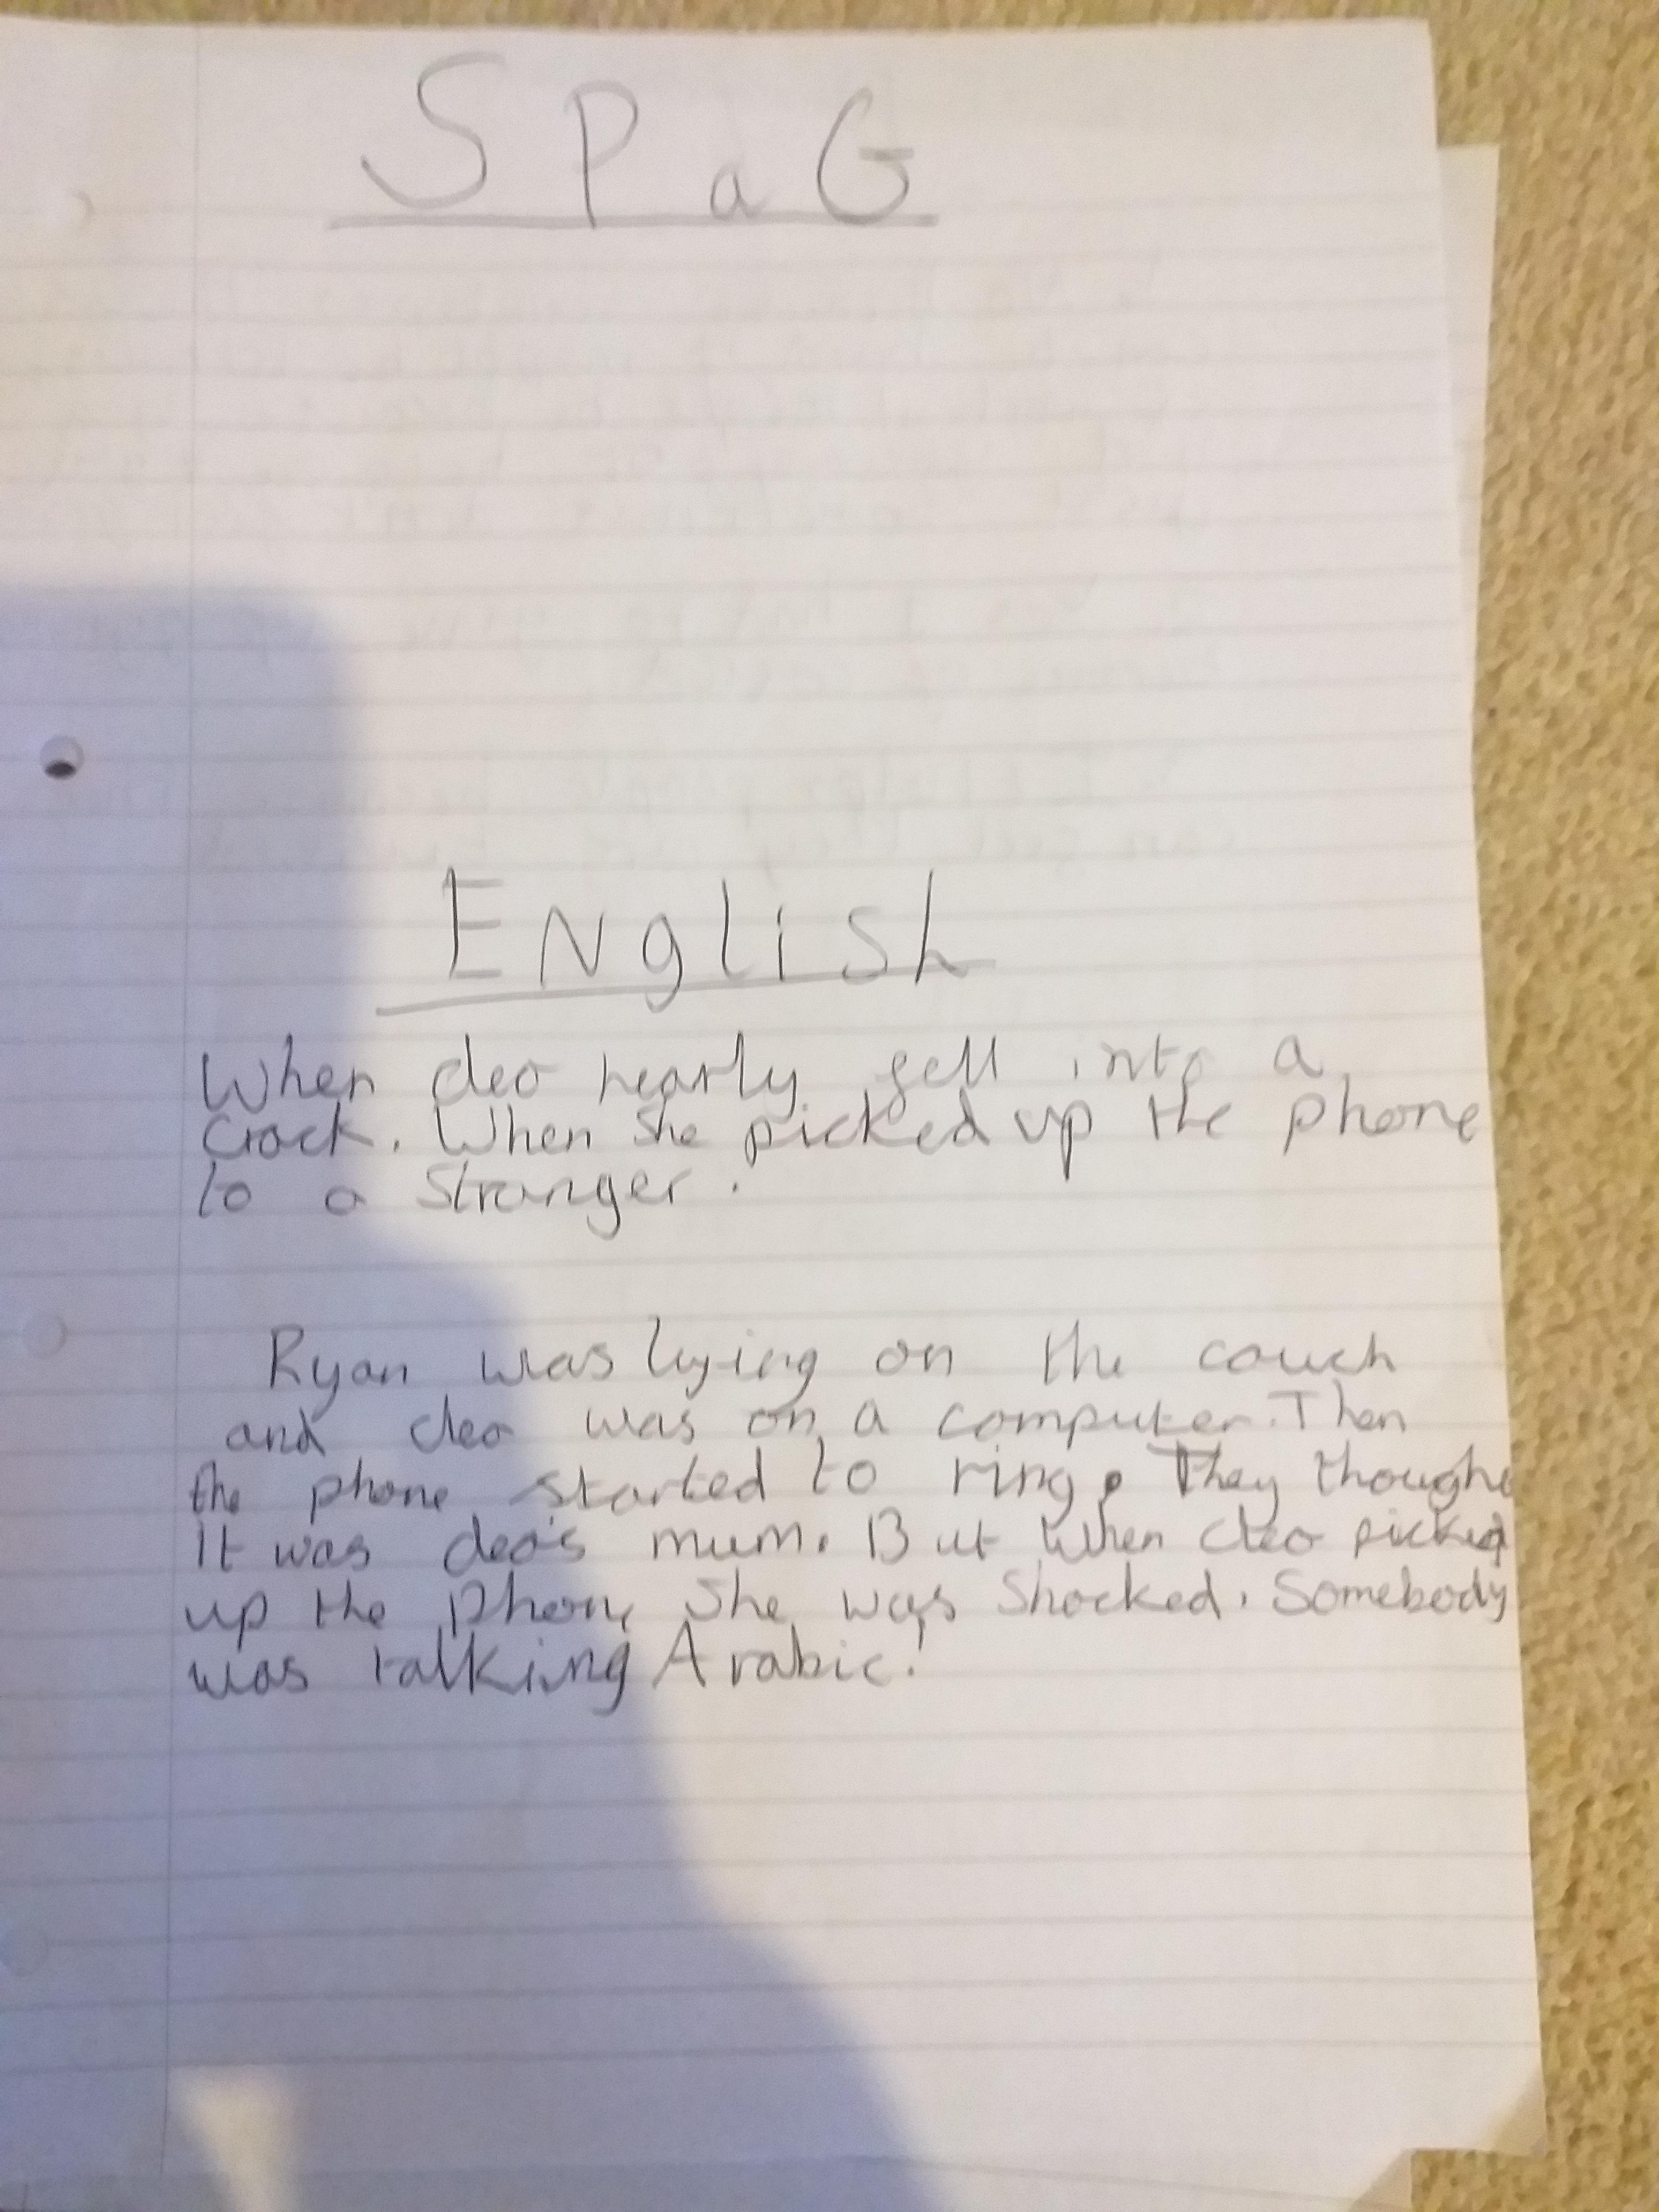 SPaG
English
When cleo nearly fell into a
crack. When she picked up the phone
to a stranger.
Ryan was lying on the couch
and cleo was on a computer. Then
the phone started to ring. They thought
It was cleo's mum. But when cleo picked
up the phone she was shocked. Somebody
was talking Arabic!